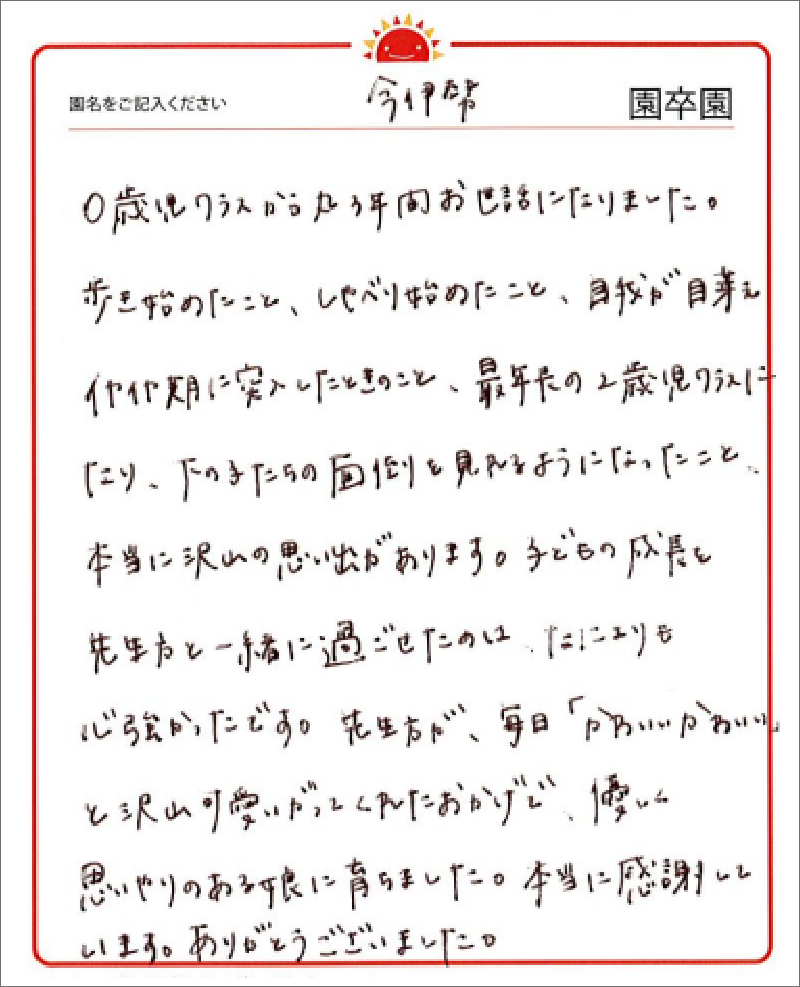 園名をご記入ください 今伊勢 園卒園
0歳児クラスから丸3年間お世話になりました。
歩き始めたこと、しゃべり始めたこと、自我が目芽え
イヤイヤ期に突入したときのこと、最年長の2歳児クラスに
なり、下の子たちの面倒を見れるようになったこと、
本当に沢山の思い出があります。子どもの成長を
先生方と一緒に過ごせたのは、なによりも
心強かったです。先生方が、毎日「かわいいかわいい」
と沢山可愛いがってくれたおかげで、優しく
思いやりのある娘に育ちました。本当に感謝して
います。ありがとうございました。